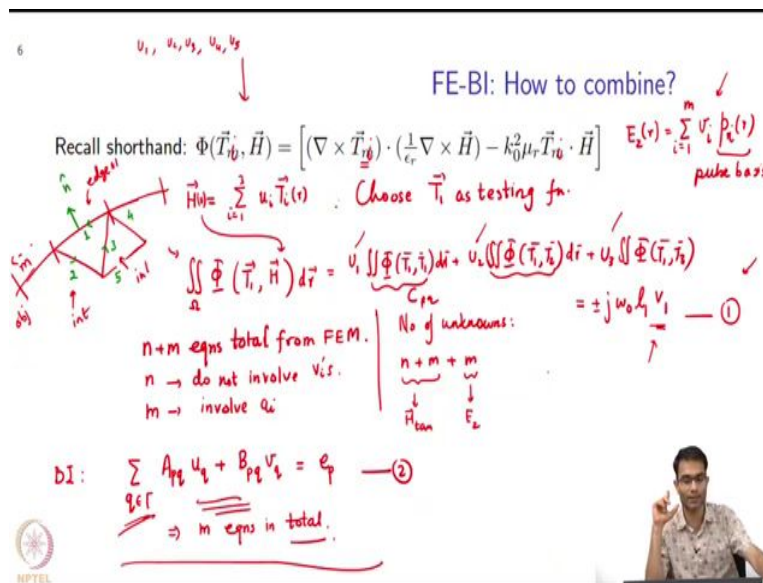 6
u₁, u₂, u₃, u₄, u₅
FE-BI: How to combine?
Recall shorthand: Φ(T⃗ₘ, H⃗) = [(∇ × T⃗ₘ) · (1/εᵣ ∇ × H⃗) − k₀² μᵣ T⃗ₘ · H⃗]
E₂(r) = Σ_{i=1}^{m} vᵢ pᵢ(r)
pulse basis
n̂
edge #1
1
2
3
4
5
"m"
obj
int
int
H⃗(r) = Σ_{i=1}^{3} uᵢ T⃗ᵢ(r) . Choose T⃗₁ as testing fn.
∬_Ω Φ(T⃗₁, H⃗) dr⃗ = u₁ ∬ Φ(T⃗₁, T⃗₁) dr⃗ + u₂ ∬ Φ(T⃗₁, T⃗₂) dr⃗ + u₃ ∬ Φ(T⃗₁, T⃗₃)
C_pq
= ± j w₀ l₁ v₁ — ①
n+m eqns total from FEM.
n → do not involve vᵢ's.
m → involve
No of unknowns:
n + m + m
H⃗tan
E₂
BI: Σ_{q∈Γ} A_pq u_q + B_pq v_q = e_p — ②
⇒ m eqns in total.
NPTEL